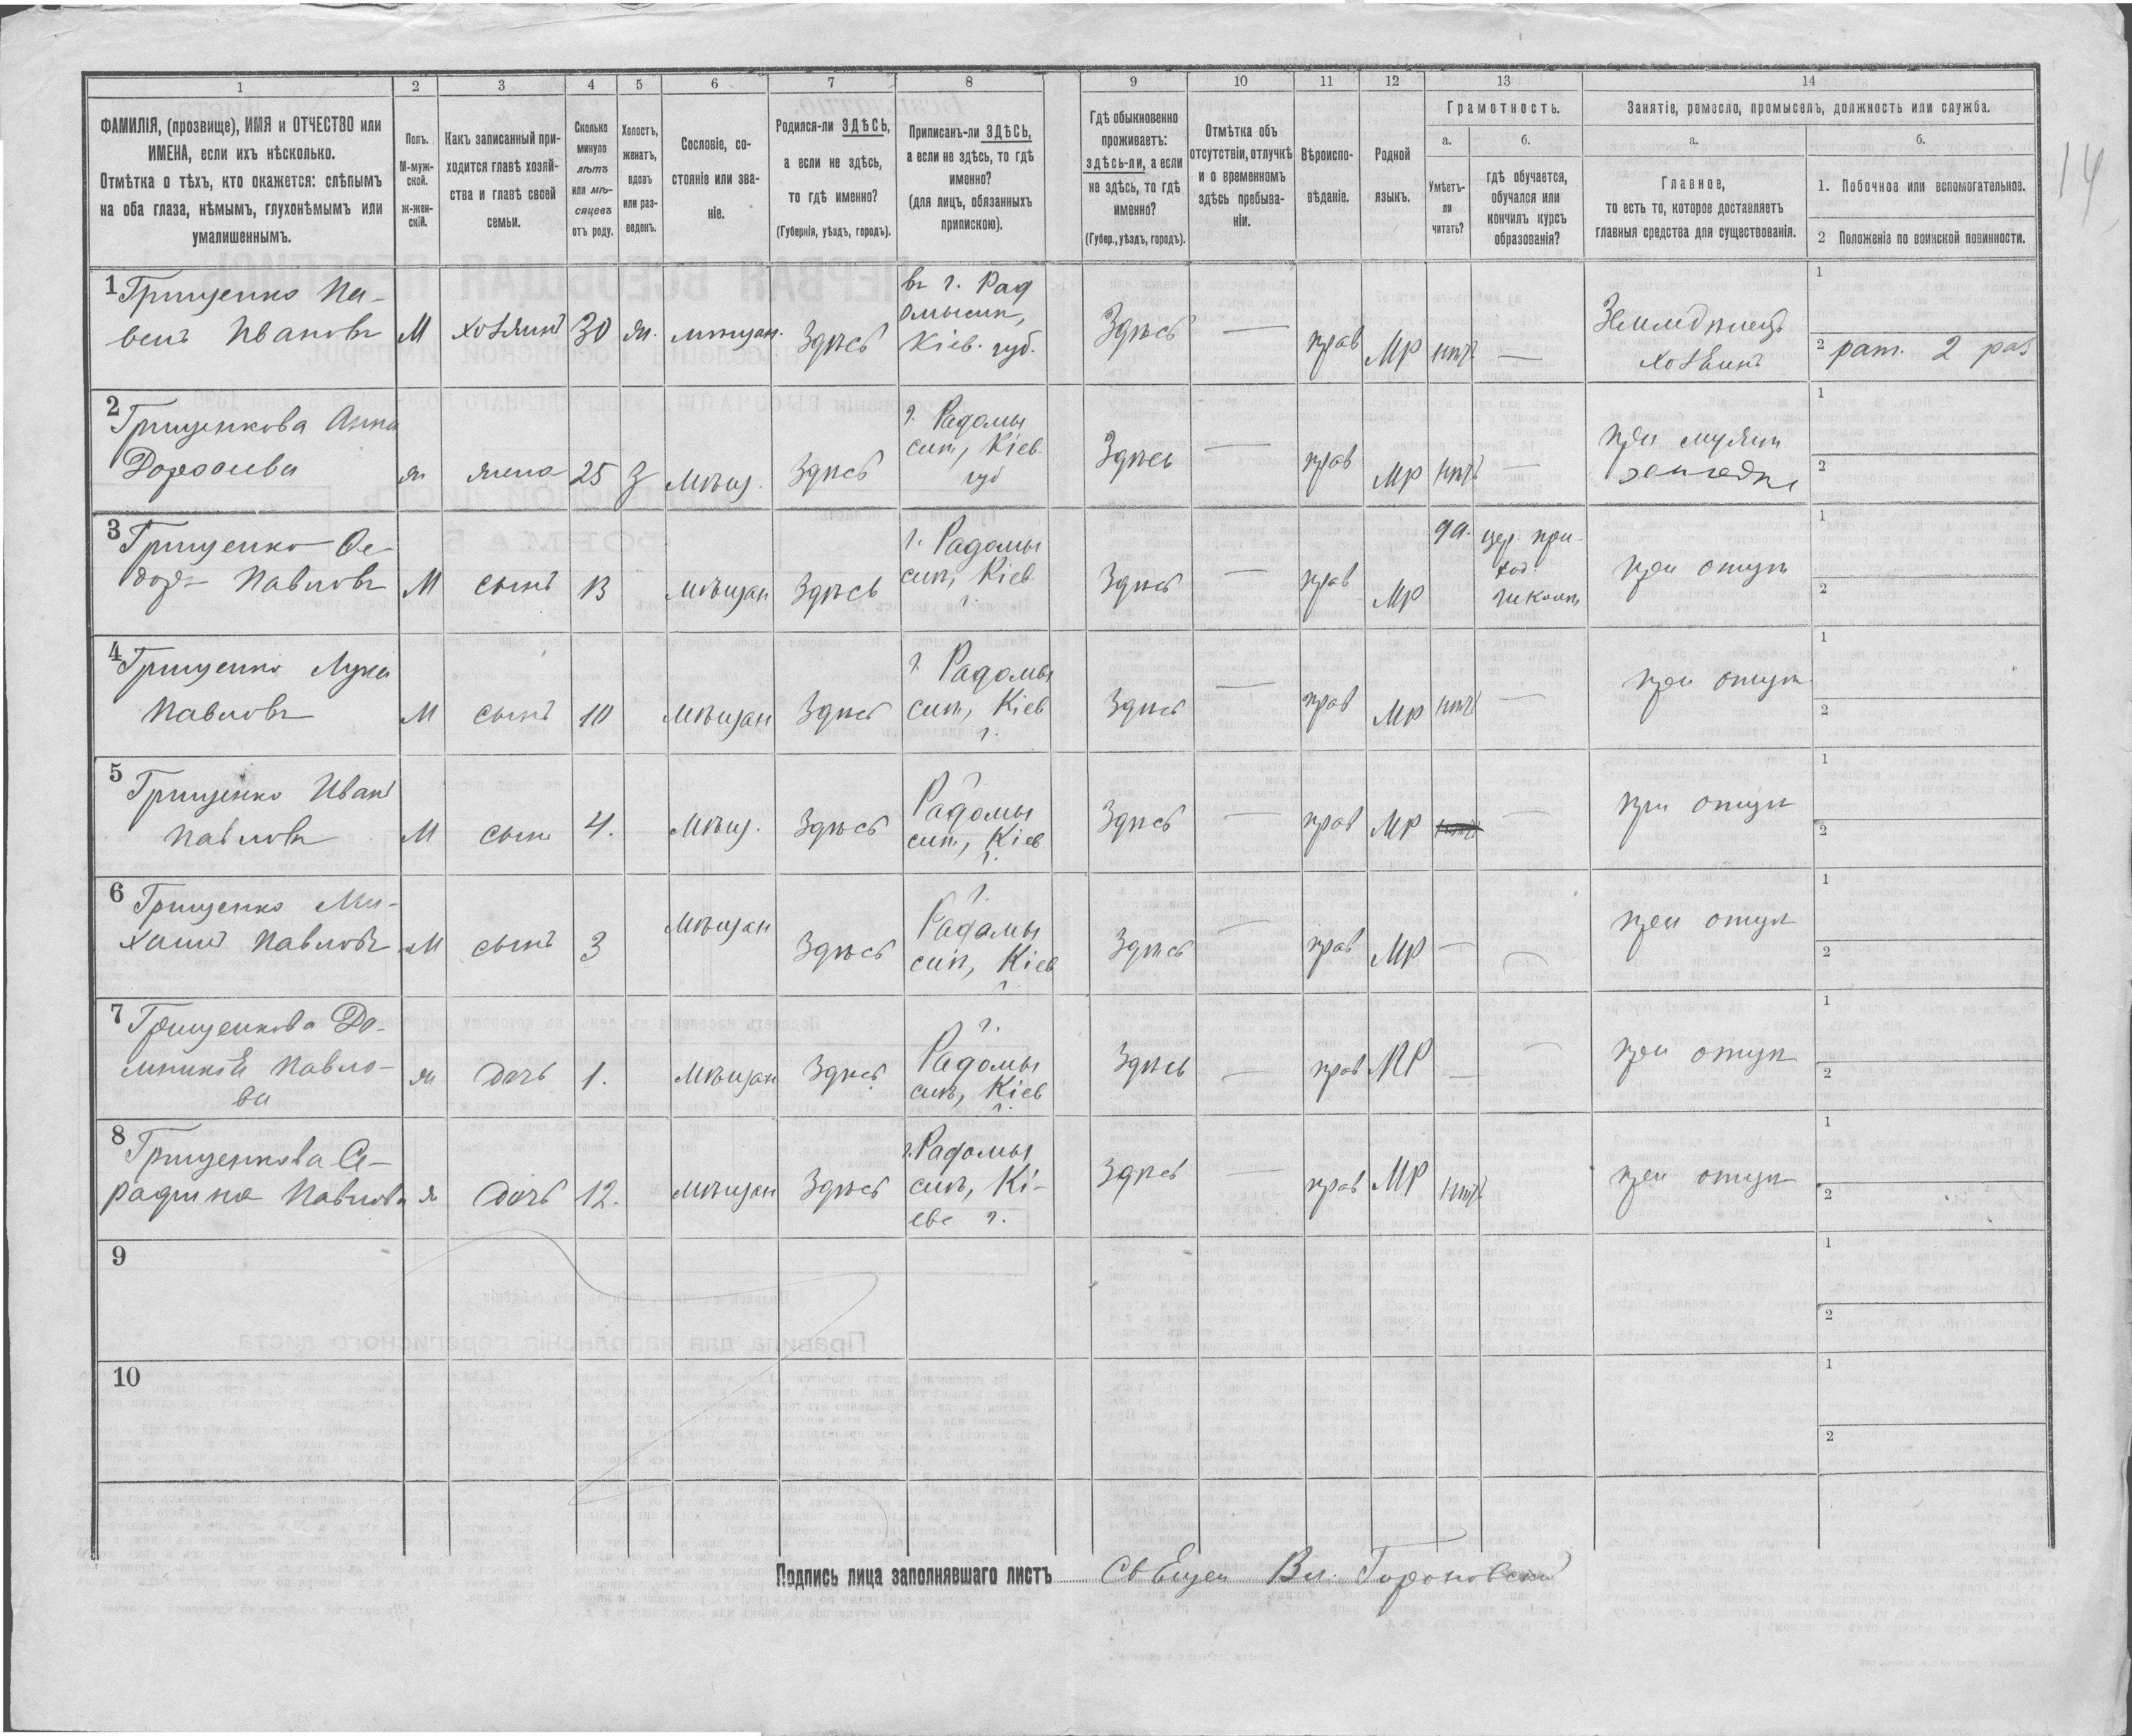 1 2 3 4 5 6 7 8 9 10 11 12 13 14
ФАМИЛІЯ, (прозвище), ИМЯ и ОТЧЕСТВО или
ИМЕНА, если ихъ нѣсколько.
Отмѣтка о тѣхъ, кто окажется: слѣпымъ
на оба глаза, нѣмымъ, глухонѣмымъ или
умалишеннымъ.
Полъ.
М-муж-
ской.
ж-жен-
скій.
Какъ записанный при-
ходится главѣ хозяй-
ства и главѣ своей
семьи.
Сколько
минуло
лѣтъ
или мѣ-
сяцевъ
отъ роду.
Холостъ,
женатъ,
вдовъ
или раз-
веденъ.
Сословіе, со-
стояніе или зва-
ніе.
Родился-ли ЗДѢСЬ,
а если не здѣсь,
то гдѣ именно?
(Губернія, уѣздъ, городъ).
Приписанъ-ли ЗДѢСЬ,
а если не здѣсь, то гдѣ
именно?
(для лицъ, обязанныхъ
припискою).
Гдѣ обыкновенно
проживаетъ:
здѣсь-ли, а если
не здѣсь, то гдѣ
именно?
(Губер., уѣздъ, городъ).
Отмѣтка объ
отсутствіи, отлучкѣ
и о временномъ
здѣсь пребыва-
ніи.
Вѣроиспо-
вѣданіе.
Родной
языкъ.
Грамотность.
а.
Умѣетъ-
ли
читать?
б.
гдѣ обучается,
обучался или
кончилъ курсъ
образованія?
Занятіе, ремесло, промыселъ, должность или служба.
а.
Главное,
то есть то, которое доставляетъ
главныя средства для существованія.
б.
1. Побочное или вспомогательное.
2 Положеніе по воинской повинности.
14
1 Грищенко Па-
велъ Ивановъ
М
хозяинъ
30
ж.
мѣщан.
Здѣсь
въ г. Рад
омыслѣ,
Кіев. губ.
Здѣсь
—
прав
МР
нѣтъ
—
Земледѣлецъ
хозяинъ
1
2 рат. 2 раз
2 Грищенкова Анна
ж
жена
25
З
мѣщ.
Здѣсь
г. Радомы
слѣ, Кіев.
губ
Здѣсь
—
прав
МР
нѣтъ
—
при мужѣ
1
2
3 Грищенко Ѳе-
доръ Павловъ
М
сынъ
13
мѣщан
Здѣсь
г. Радомы
слѣ, Кіев
г.
Здѣсь
—
прав
МР
да.
цер. при-
ход.
при отцѣ
1
2
4 Грищенко Лука
Павловъ
М
сынъ
10
мѣщан
Здѣсь
г. Радомы
слѣ, Кіев
г.
Здѣсь
—
прав
МР
нѣтъ
—
при отцѣ
1
2
5 Грищенко Иванъ
Павловъ
М
сынъ
4.
мѣщ.
Здѣсь
г.
Радомы
слѣ, Кіев
г.
Здѣсь
—
прав
МР
—
при отцѣ
1
2
6 Грищенко Ми-
хаилъ Павловъ
М
сынъ
3
мѣщан
Здѣсь
г.
Радомы
слѣ, Кіев
г.
Здѣсь
—
прав
МР
—
—
при отцѣ
1
2
7 Грищенкова До-
мникія Павло-
ва
ж
дочь
1.
мѣщан
Здѣсь
г.
Радомы
слѣ, Кіев
г.
Здѣсь
—
прав
МР
—
—
при отцѣ
1
2
8 Грищенкова Се-
рафима Павлова
ж
дочь
12.
мѣщан
Здѣсь
г. Радомы
слѣ, Кі-
евс г.
Здѣсь
—
прав
МР
нѣтъ
при отцѣ
1
2
9
1
2
10
1
2
Подпись лица заполнявшаго листъ Священ Вл.